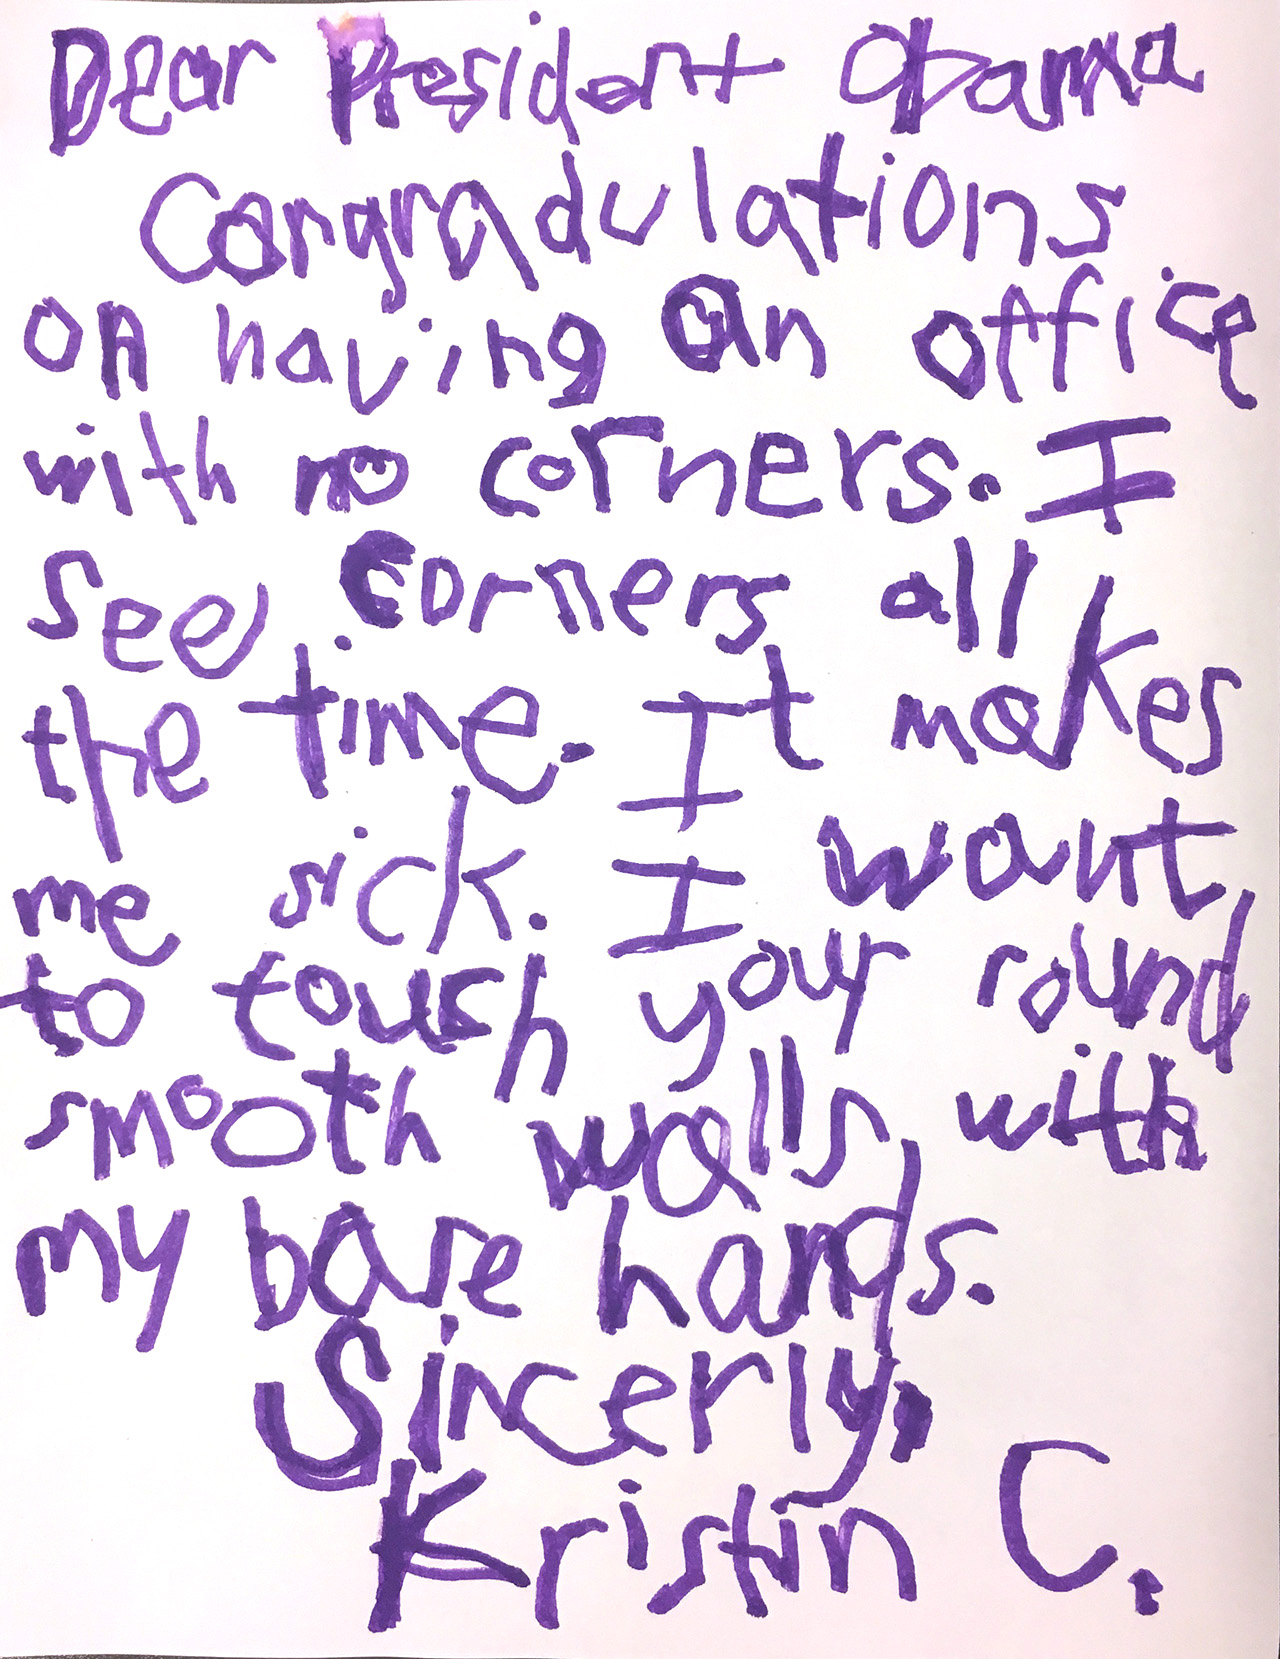 Dear President Obama
Congradulations
on having an office
with no corners. I
see corners all
the time. It makes
me sick. I want
to tousch your round
smooth walls with
my bare hands.
Sincerly,
Kristin C.